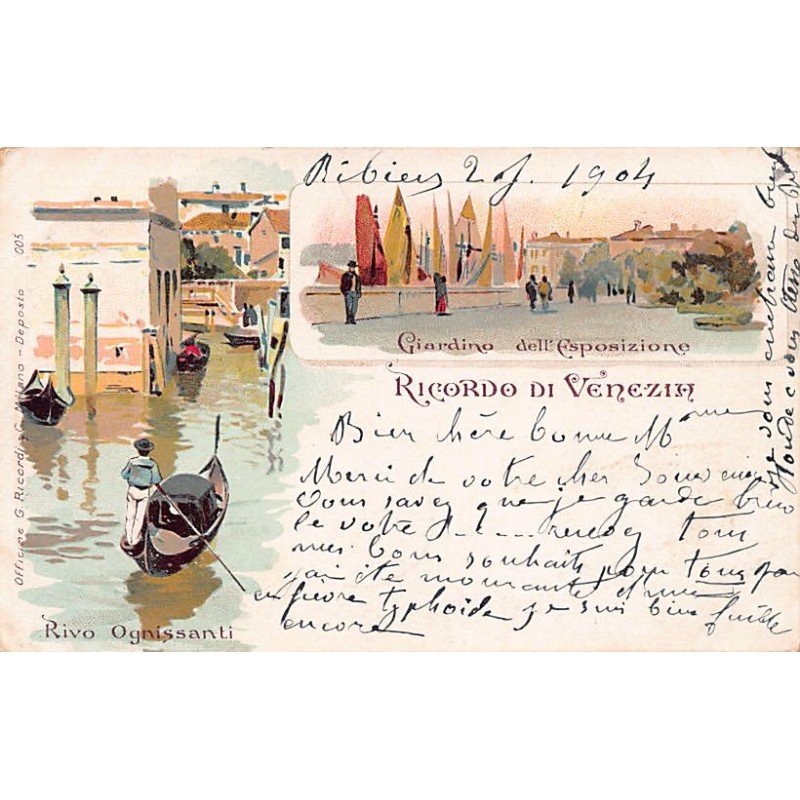 Ribiers 2 J. 1904
Giardino dell'Esposizione
RICORDO DI VENEZIA
Bien chère bonne Mme
Merci de votre cher Souvenir
vous savez que je garde bien
le votre recevez tous
mes bons souhaits pour tous j'ai
j'ai été mourante d'une
fièvre typhoide je suis bien faible
encore
je vous embrasse bien
Rivo Ognissanti
Officine G. Ricordi & C. Milano - Deposto 005